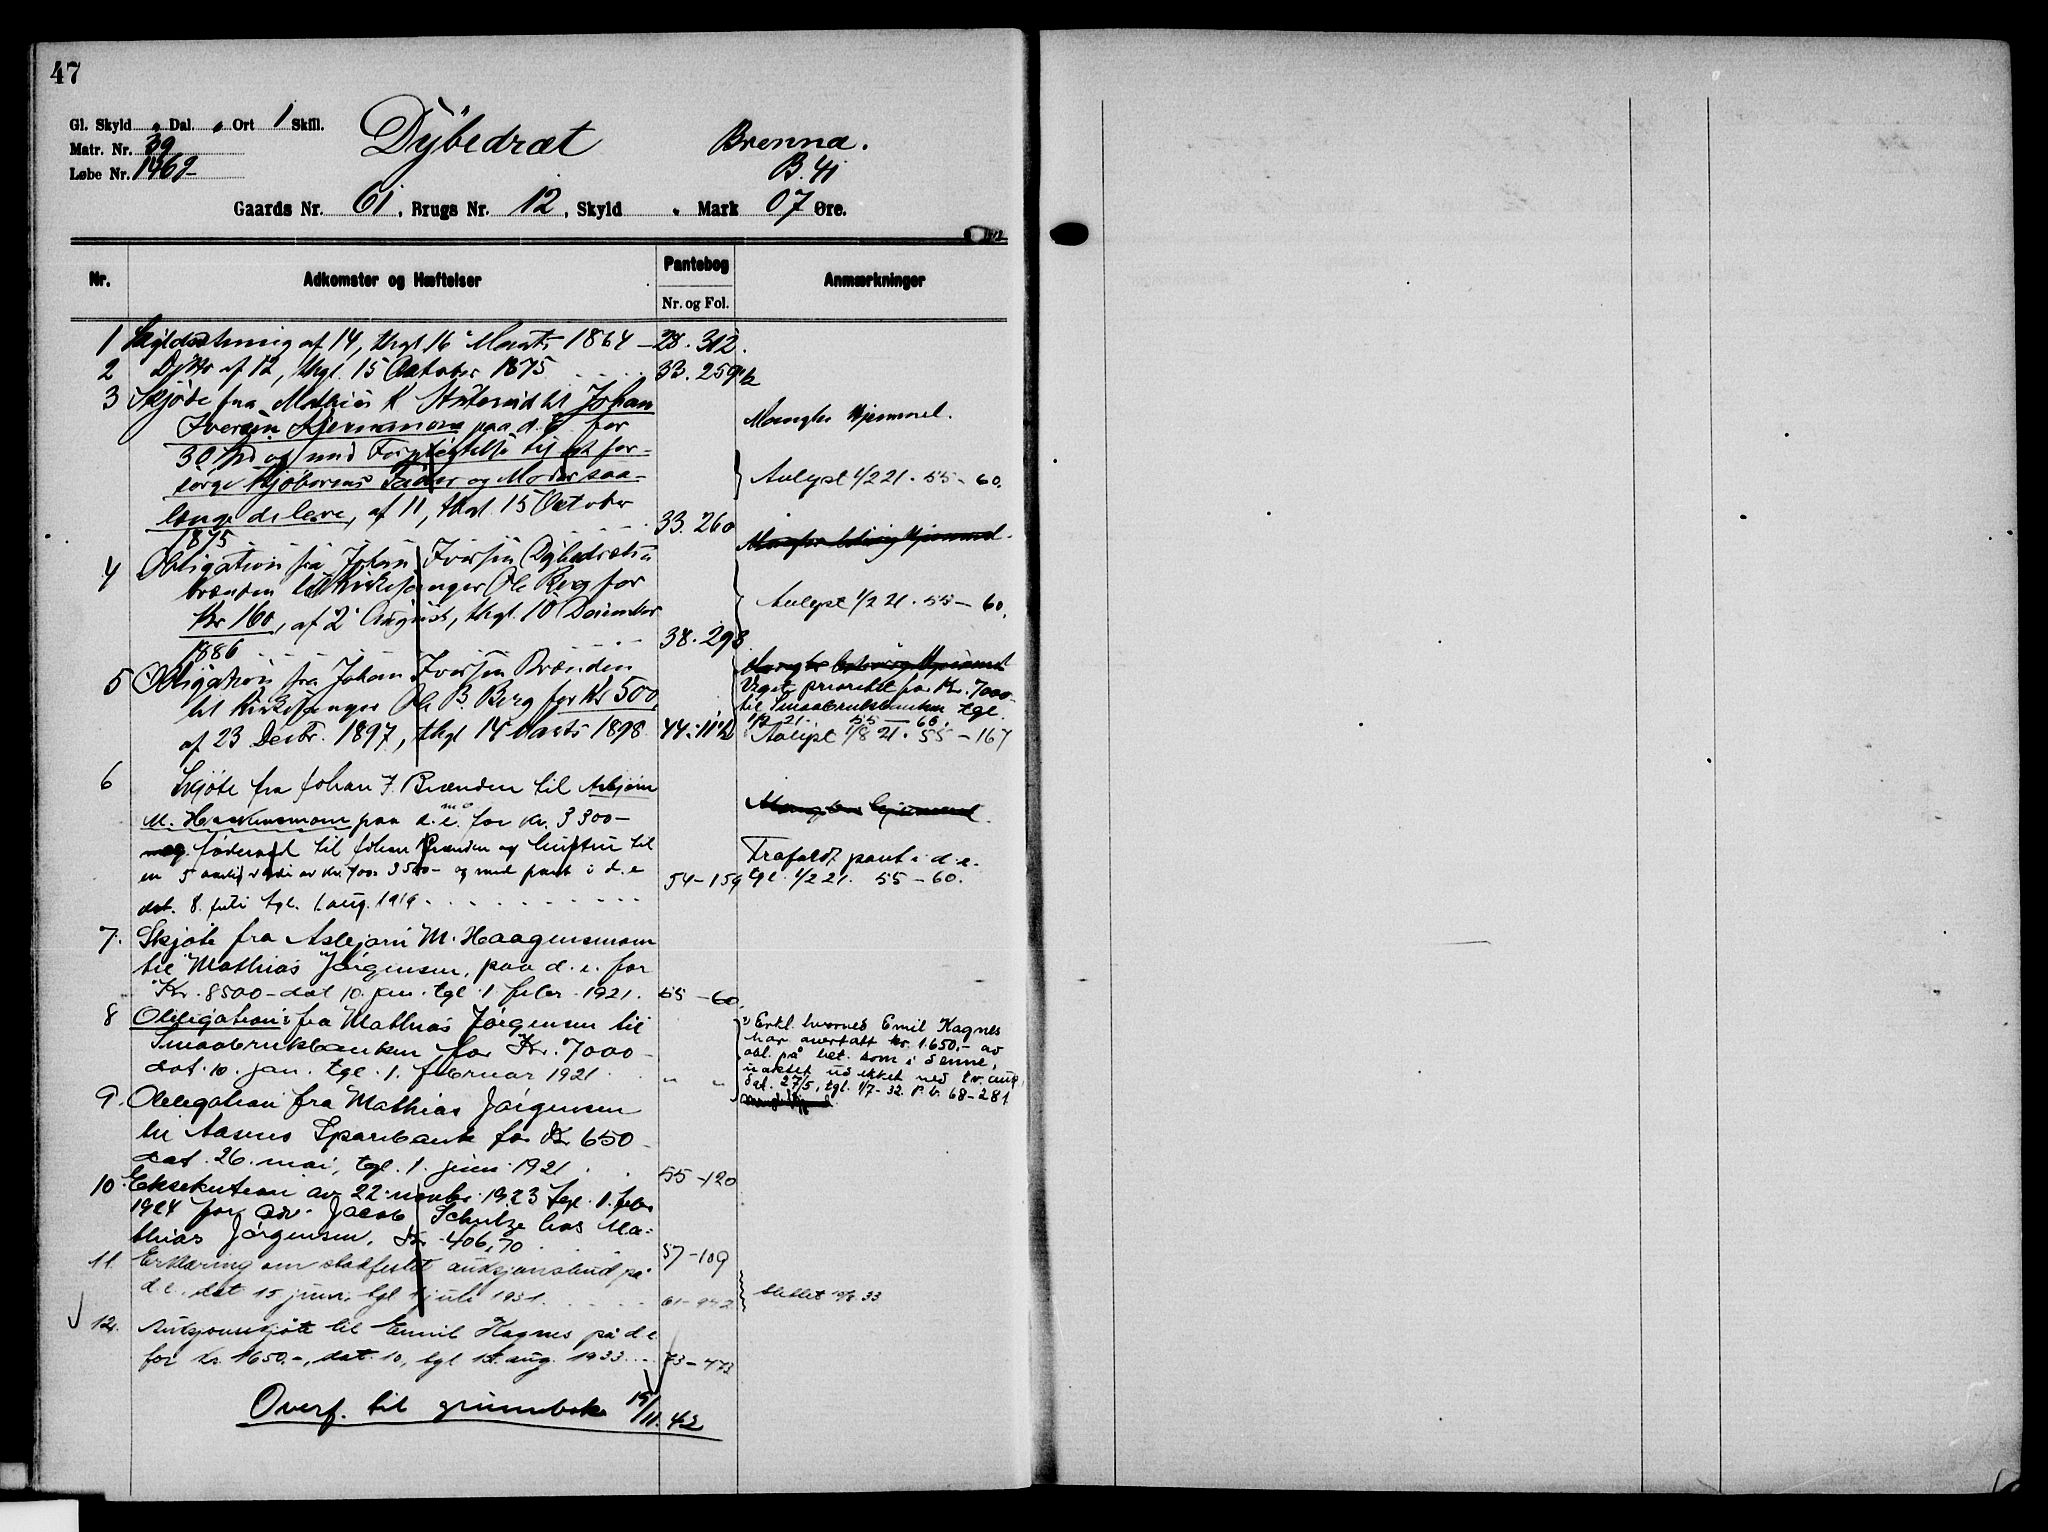 47
Gl. Skyld „ Dal. „ Ort 1 Skill.
Matr. Nr. 39
Løbe Nr. 146
Dybedræt
Brenna.
B. 41
Gaards Nr. 61, Brugs Nr. 12, Skyld „ Mark 07 Øre.
Nr.
Adkomster og Hæftelser
Pantebog
Nr. og Fol.
Anmærkninger
1 Skyldsætning af 14, thgl 16 Marts 1864 28. 312.
2 Ditto af 12, thgl. 15 Oktober 1875 33. 259
3 Skjøde fra Mathias K til Johan
Iversen paa d. E. for
30 Spd og med Forpligtelse til at for-
sørge Kjøberens Fader og Moder saa-
længe de leve, af 11, thgl. 15 Oktober
1875 33. 260
Mangler Hjemmel.
Avlyst 1/2 21. 55 - 60.
4 Obligation fra Johan Iversen Dybedræt
brænden til Kirkesanger Ole Berg for
Kr 160, af 2 August, thgl. 10 December
1886 38. 298
Avlyst 1/2 21. 55 - 60.
5 Obligation fra Johan Iversen Brænden
til Kirkesanger Ole B. Berg for Kr 500,
af 23 Decbr. 1897, thgl 14 Marts 1898 44. 11
Veget prioritet for Kr. 7000
til Smaabrukbanken tgl.
1/2 21. 55 - 60.
Avlyst 1/8 21. 55 - 167
6 Skjøte fra Johan I. Brænden til Asbjørn
M. paa d. e. for kr. 3300 -
føderaad til Johan Brænden og hustru til
en 5 aarlig værdi av kr. 700 3500 - og med pant i d. e
dat. 8. juli tgl. 1. aug. 1919 54 - 159
Mangler hjemmel.
Frafaldt pant i d. e.
tgl. 1/2 21. 55 - 60.
7. Skjøte fra M. Haagensmoen
til Mathias Jørgensen, paa d. e. for
Kr. 8500 - dat 10. jan. tgl. 1. febr. 1921. 55 - 60.
8 Obligation fra Mathias Jørgensen til
Smaabrukbanken, for Kr. 7000 -
dat. 10. jan. tgl. 1. februar 1921. „ „
Erkl. hvornes Emil Hagnes
har overtatt kr. 1.650,- av
obl. på bet. som i denne,
dat. 27/5, tgl. 1/7 - 32. P. b. 68 - 281
9. Obligation fra Mathias Jørgensen
til Aasnes Sparebank for Kr 650 -
dat. 26. mai, tgl. 1. juni 1921 55 - 120
10. Eksekution av 22. novbr. 1923 tgl. 1. febr
1924 for adv. Jacob Schulze hos Ma-
thias Jørgensen, Kr 406,70 57 - 109
11. Erklæring om stadfestet auksjonsbud på
d. e. dat 15 juni, tgl 1 juli 1931.
Slettet 33
12. Auksjonsskjøte til Emil Hagnes på d. e.
for kr. 1650.-, dat. 10, tgl 15. aug. 1933 73 - 473
Overf. til grunnbok 15/11. 42